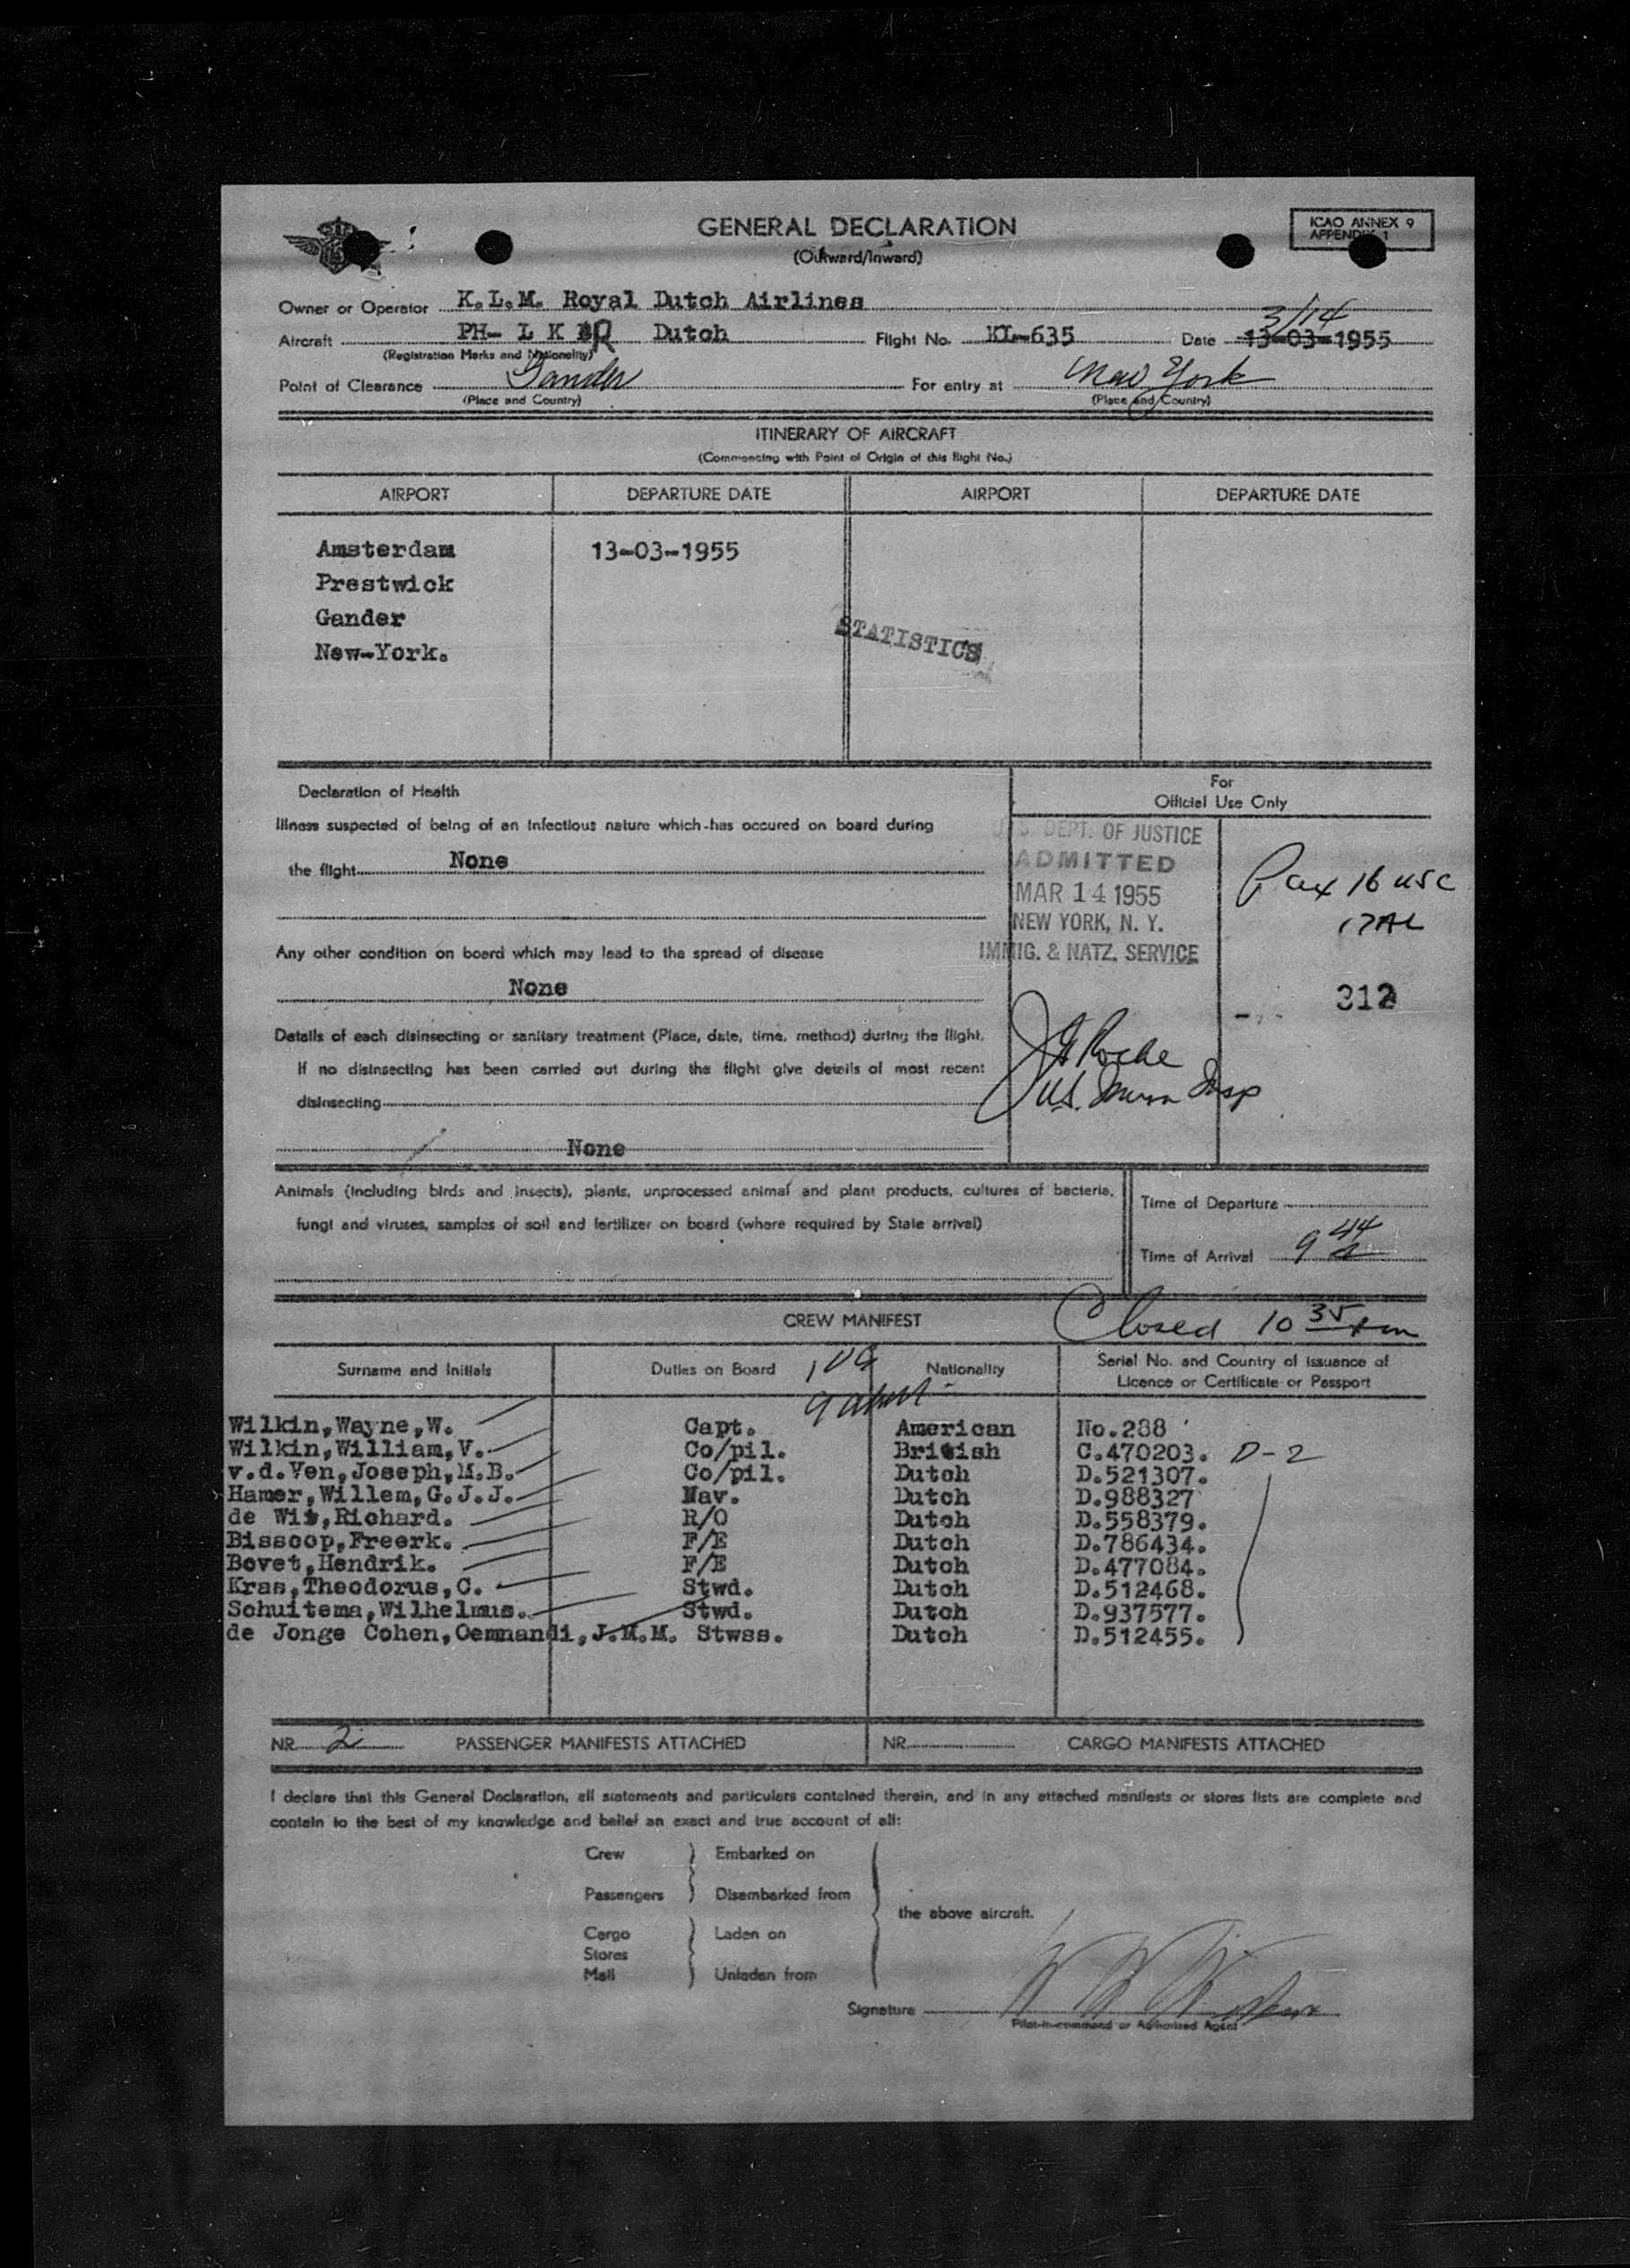 GENERAL DECLARATION
(Outward/Inward)
ICAO ANNEX 9
APPENDIX 1
Owner or Operator K.L.M. Royal Dutch Airlines
3/14
Aircraft PH- L K Dutch Flight No. KL-635 Date 13-03-1955
(Registration Marks and Nationality)
Point of Clearance Gander For entry at New York
(Place and Country) (Place and Country)
ITINERARY OF AIRCRAFT
(Commencing with Point of Origin of this flight No.)
AIRPORT DEPARTURE DATE AIRPORT DEPARTURE DATE
Amsterdam 13-03-1955
Prestwick
Gander
New-York.
STATISTICS
Declaration of Health
For
Official Use Only
Illness suspected of being of an infectious nature which has occured on board during
the flight None
U.S. DEPT. OF JUSTICE
ADMITTED
MAR 14 1955
NEW YORK, N. Y.
IMMIG. & NATZ. SERVICE
Pax 16 USC
17 AL
312
Any other condition on board which may lead to the spread of disease
None
Details of each disinsecting or sanitary treatment (Place, date, time, method) during the flight.
If no disinsecting has been carried out during the flight give details of most recent
disinsecting
None
J H Roche
U.S. Imm Insp
Animals (including birds and insects), plants, unprocessed animal and plant products, cultures of bacteria,
fungi and viruses, samples of soil and fertilizer on board (where required by State arrival)
Time of Departure
Time of Arrival 9 44
CREW MANIFEST
Closed 10 35
Surname and Initials Duties on Board Nationality Serial No. and Country of Issuance of
Licence or Certificate or Passport
Wilkin,Wayne,W. Capt. American No.288
Wilkin,William,V. Co/pil. British C.470203. D-2
v.d.Ven,Joseph,M.B. Co/pil. Dutch D.521307.
Hamer,Willem,G.J.J. Nav. Dutch D.988327
de Wit,Richard. R/O Dutch D.558379.
Bisscop,Freerk. F/E Dutch D.786434.
Bovet,Hendrik. F/E Dutch D.477084.
Kras,Theodorus,C. Stwd. Dutch D.512468.
Schuitema,Wilhelmus. Stwd. Dutch D.937577.
de Jonge Cohen,Oemnandi,J.M.M. Stwss. Dutch D.512455.
NR. 2 PASSENGER MANIFESTS ATTACHED NR. CARGO MANIFESTS ATTACHED
I declare that this General Declaration, all statements and particulars contained therein, and in any attached manifests or stores lists are complete and
contain to the best of my knowledge and belief an exact and true account of all:
Crew Embarked on
Passengers Disembarked from
the above aircraft.
Cargo Laden on
Stores
Mail Unladen from
Signature
Pilot-in-command or Authorized Agent